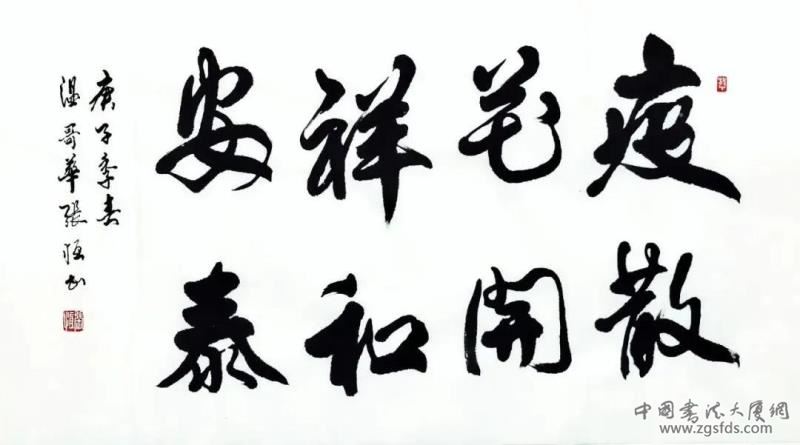 疫散
花開
祥和
安泰
庚子季春
温哥華張恒书
中國書法大廈網
www.zgsfds.com